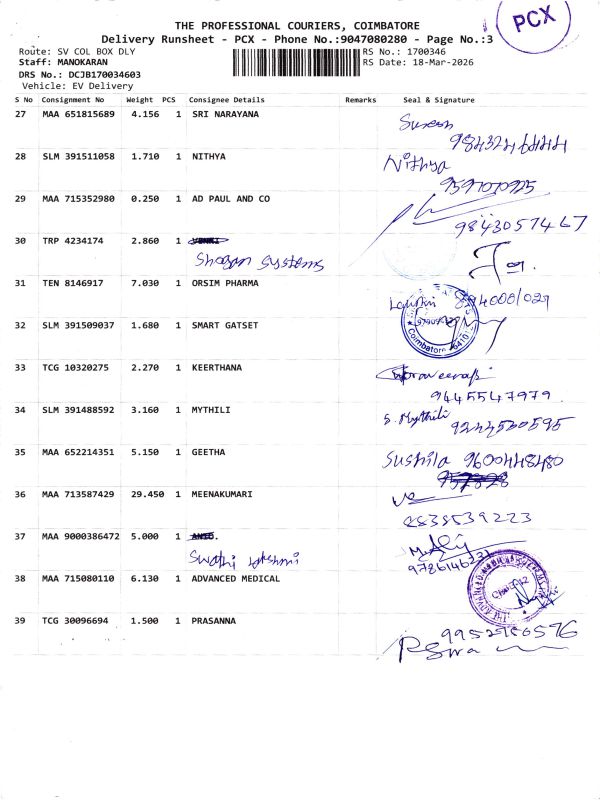 PCX
THE PROFESSIONAL COURIERS, COIMBATORE
Delivery Runsheet - PCX - Phone No.:9047080280 - Page No.:3
Route: SV COL BOX DLY RS No.: 1700346
Staff: MANOKARAN RS Date: 18-Mar-2026
DRS No.: DCJB170034603
Vehicle: EV Delivery
S No Consignment No Weight PCS Consignee Details Remarks Seal & Signature
27 MAA 651815689 4.156 1 SRI NARAYANA Suresh
28 SLM 391511058 1.710 1 NITHYA Nithya
29 MAA 715352980 0.250 1 AD PAUL AND CO
9843057467
30 TRP 4234174 2.860 1
Shogan Systems
31 TEN 8146917 7.030 1 ORSIM PHARMA
32 SLM 391509037 1.680 1 SMART GATSET
Coimbatore
33 TCG 10320275 2.270 1 KEERTHANA
9445547979
34 SLM 391488592 3.160 1 MYTHILI S. Mythili
35 MAA 652214351 5.150 1 GEETHA Sushila 9600448480
36 MAA 713587429 29.450 1 MEENAKUMARI
37 MAA 9000386472 5.000 1
Swathi lakshmi
38 MAA 715080110 6.130 1 ADVANCED MEDICAL
39 TCG 30096694 1.500 1 PRASANNA